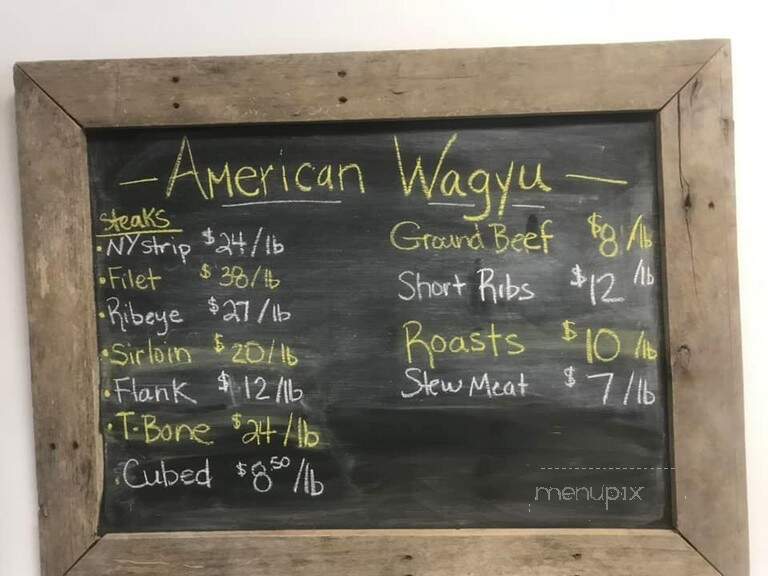 - American Wagyu -
Steaks
• NY strip $24/lb
• Filet $38/lb
• Ribeye $27/lb
• Sirloin $20/lb
• Flank $12/lb
• T-Bone $24/lb
• Cubed $8.50/lb
Ground Beef $8/lb
Short Ribs $12/lb
Roasts $10/lb
Stew Meat $7/lb
menupix